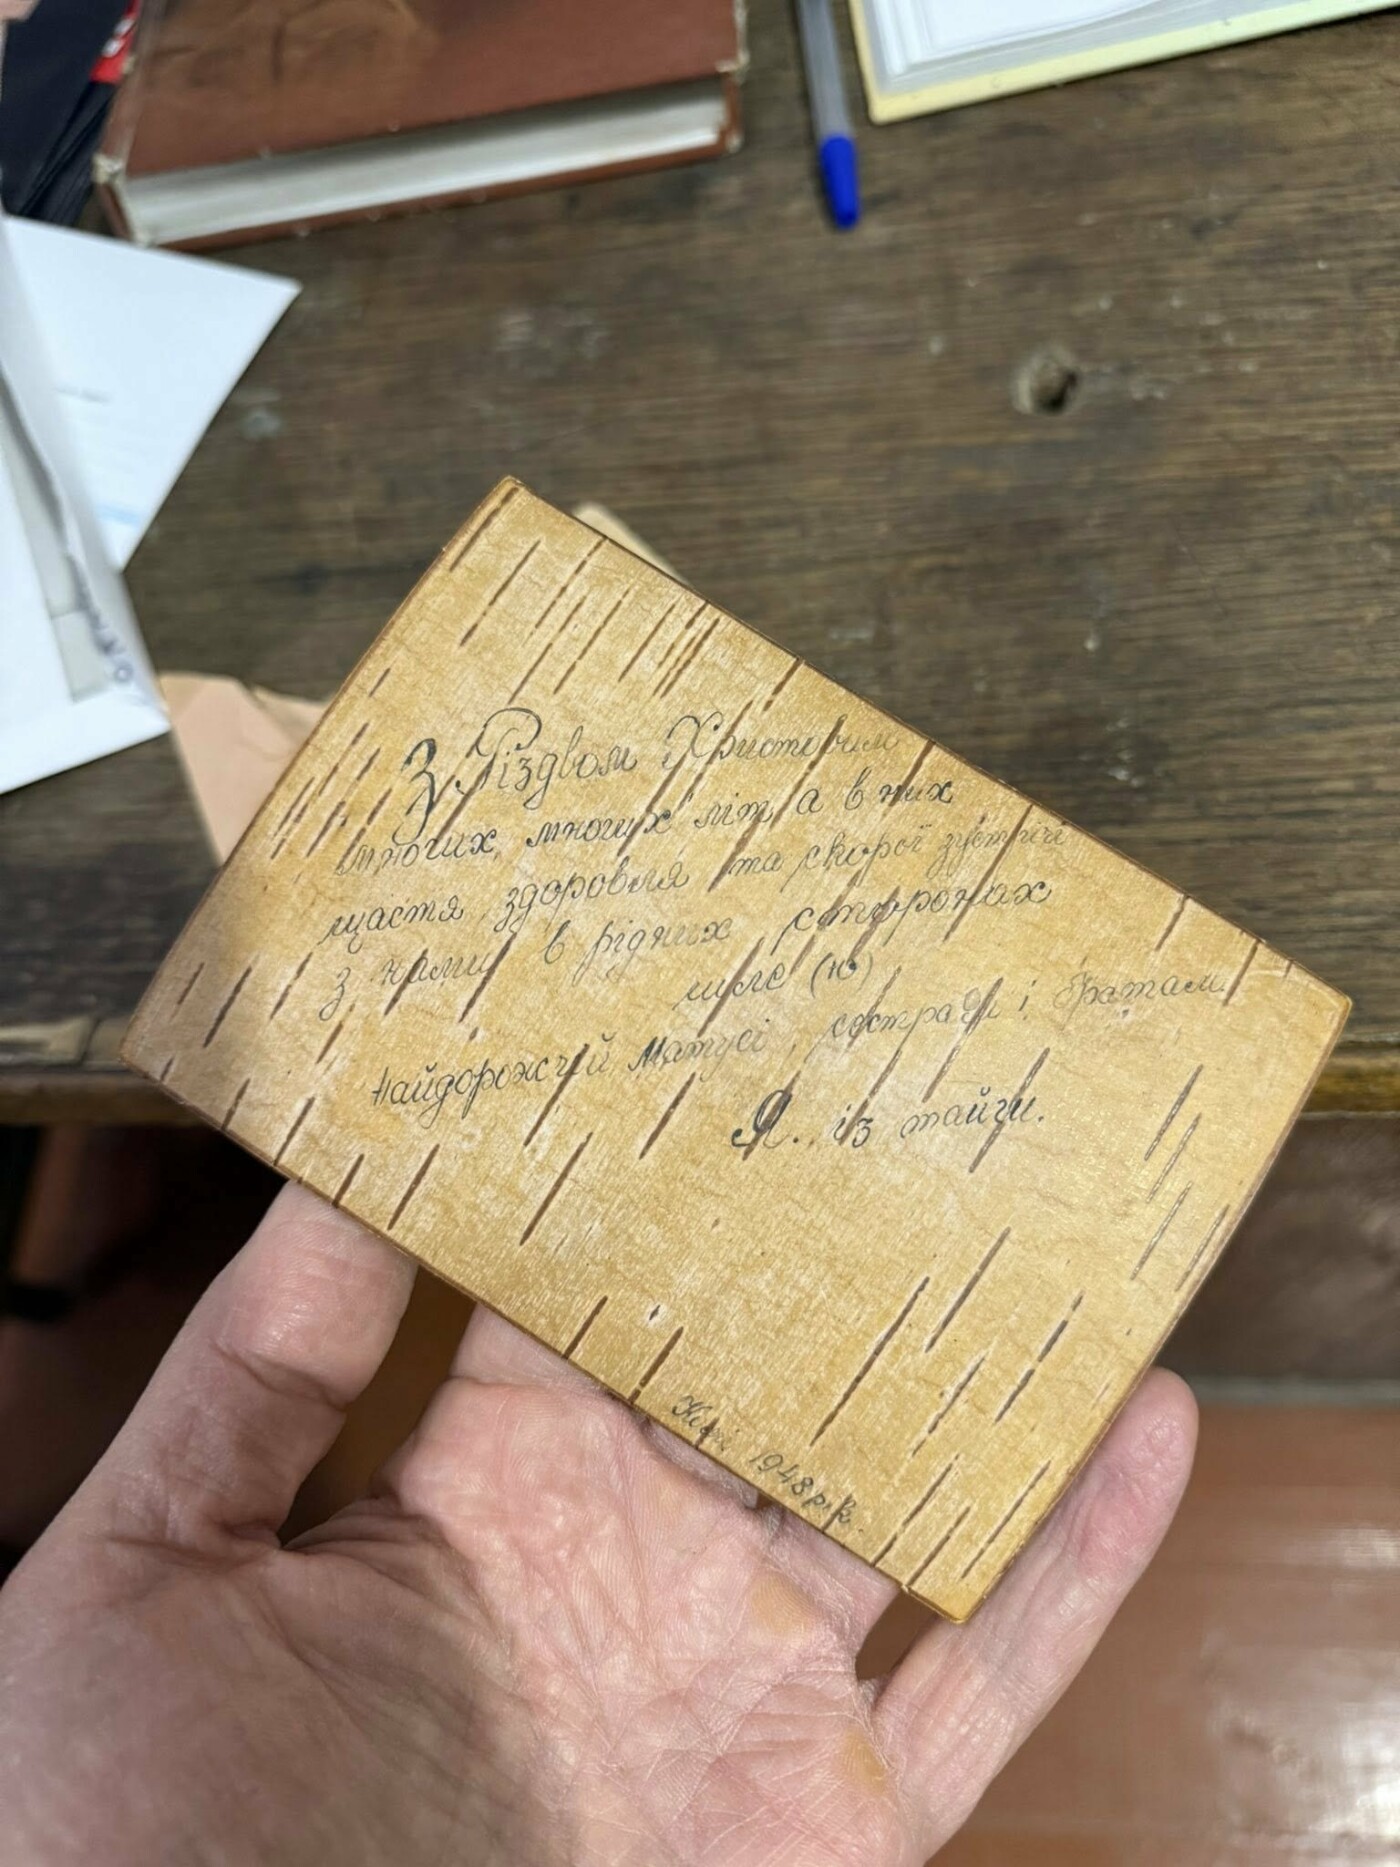 З Різдвом Христовим
многих, многих літ а в них
щастя, здоровля та скорої зустрічі
з нами в рідних сторонах
шле (ю)
Найдорожчій Матусі, сестрам і братам
Я. із тайги.
1948 рік.